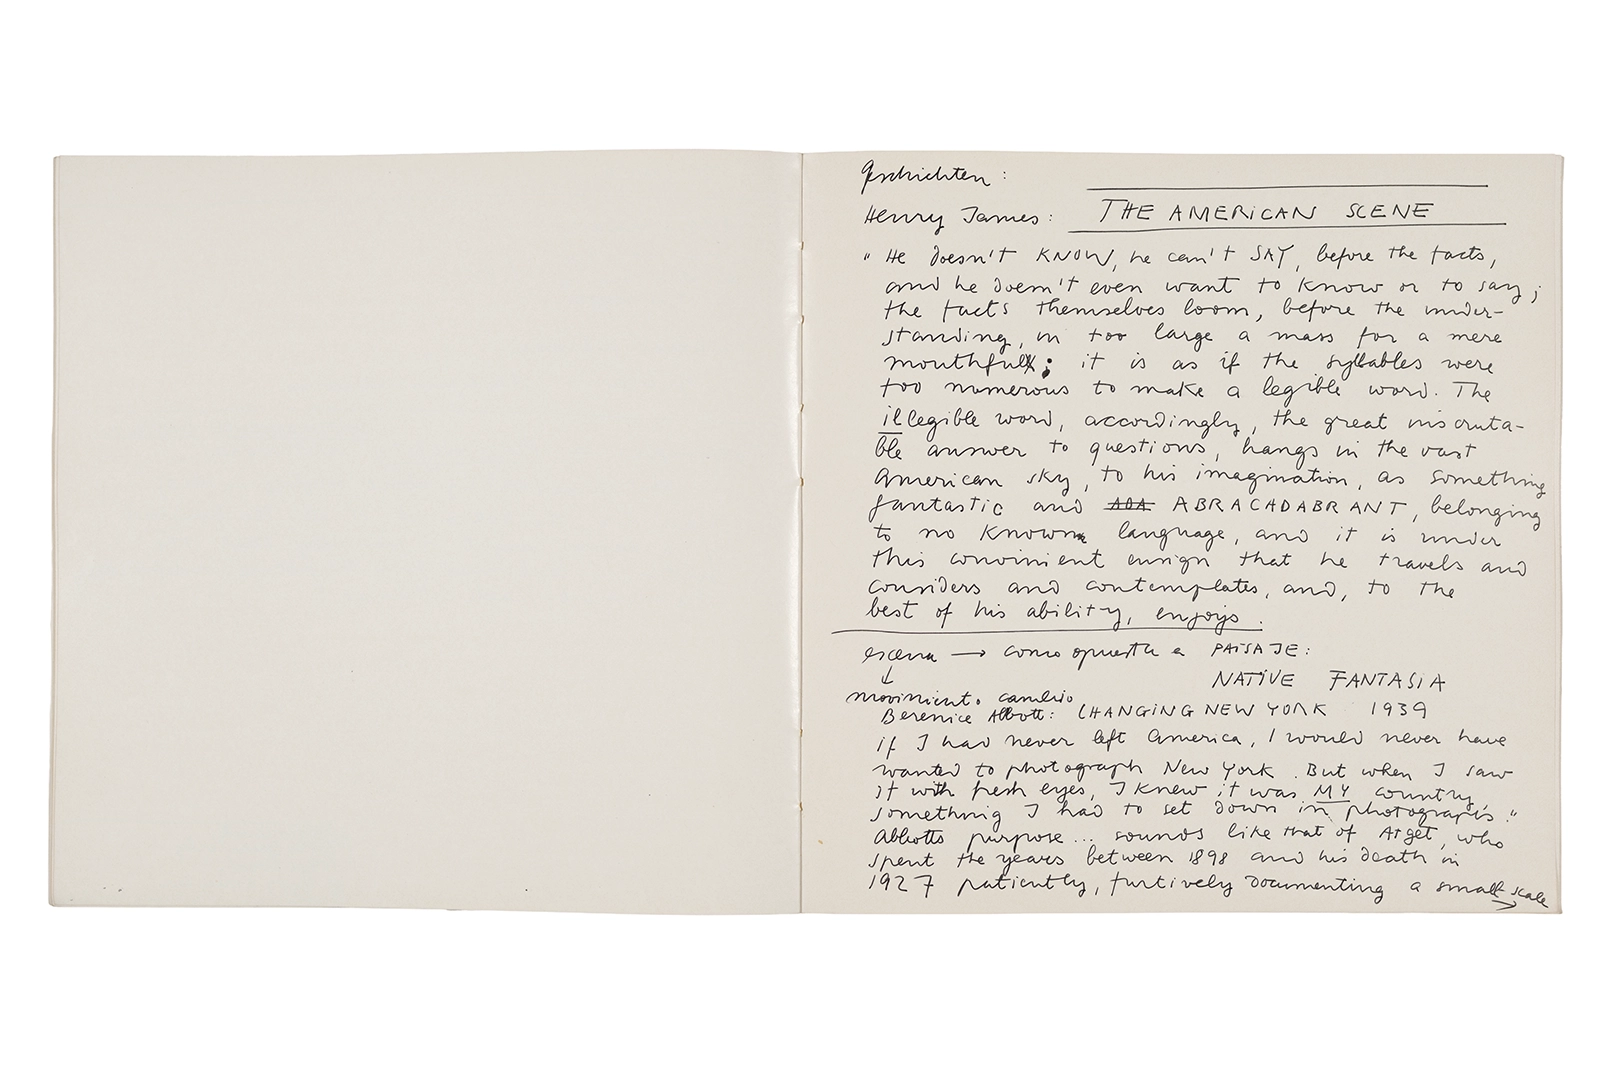 Geschichten:
Henry James: THE AMERICAN SCENE
" He doesn't KNOW, he can't SAY, before the facts,
and he doesn't even want to know or to say;
the facts themselves loom, before the under-
standing, in too large a mass for a mere
mouthful; it is as if the syllables were
too numerous to make a legible word. The
illegible word, accordingly, the great inscruta-
ble answer to questions, hangs in the vast
American sky, to his imagination, as something
fantastic and ABRACADABRANT, belonging
to no known language, and it is under
this convinient ensign that he travels and
considers and contemplates, and, to the
best of his ability, enjoys.
escena → como opuesta a PAISAJE:
↓ NATIVE FANTASIA
movimiento cambio
Berenice Abbott: CHANGING NEW YORK 1939
if I had never left America, I would never have
wanted to photograph New York. But when I saw
it with fresh eyes, I knew it was MY country,
something I had to set down in photographs."
Abbotts purpose... sounds like that of Atget, who
spent the years between 1898 and his death in
1927 patiently, furtively documenting a small scale
→